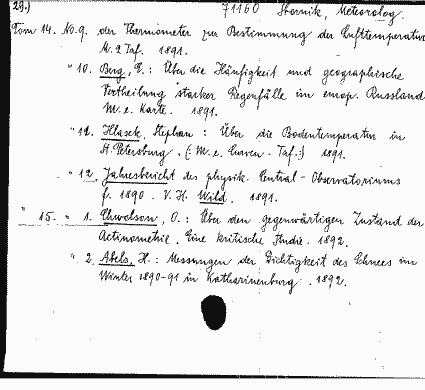 29.) 71160 Sbornik, Meteorolog.
Tom 14. No. 9. der Thermometer zur Bestimmung der Lufttemperatur
M. 2 Taf. 1891.
" 10. Berg, E.: Über die Häufigkeit und geographische
Vertheilung starker Regenfälle im europ. Russland
M. e. Karte. 1891.
" 11. Hlasek, Stephan: Über die Bodentemperatur in
St. Petersburg. (: M. e. Curven-Taf.:) 1891.
" 12. Jahresbericht des physik. Central-Observatoriums
f. 1890. V. H. Wild. 1891.
" 15. " 1. Chwolson, O.: Über den gegenwärtigen Zustand der
Actinometrie. Eine kritische Studie. 1892.
" 2. Abels, H.: Messungen der Dichtigkeit des Schnees im
Winter 1890-91 in Katharinenburg. 1892.